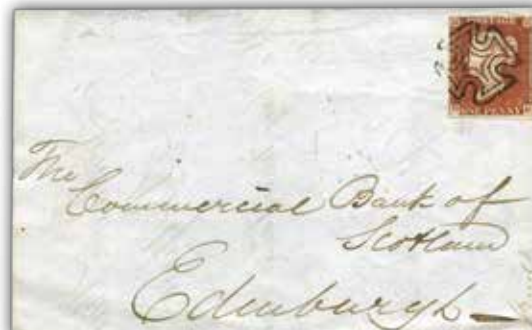 POSTAGE
ONE PENNY
The
Commercial Bank of
Scotland
Edinburgh